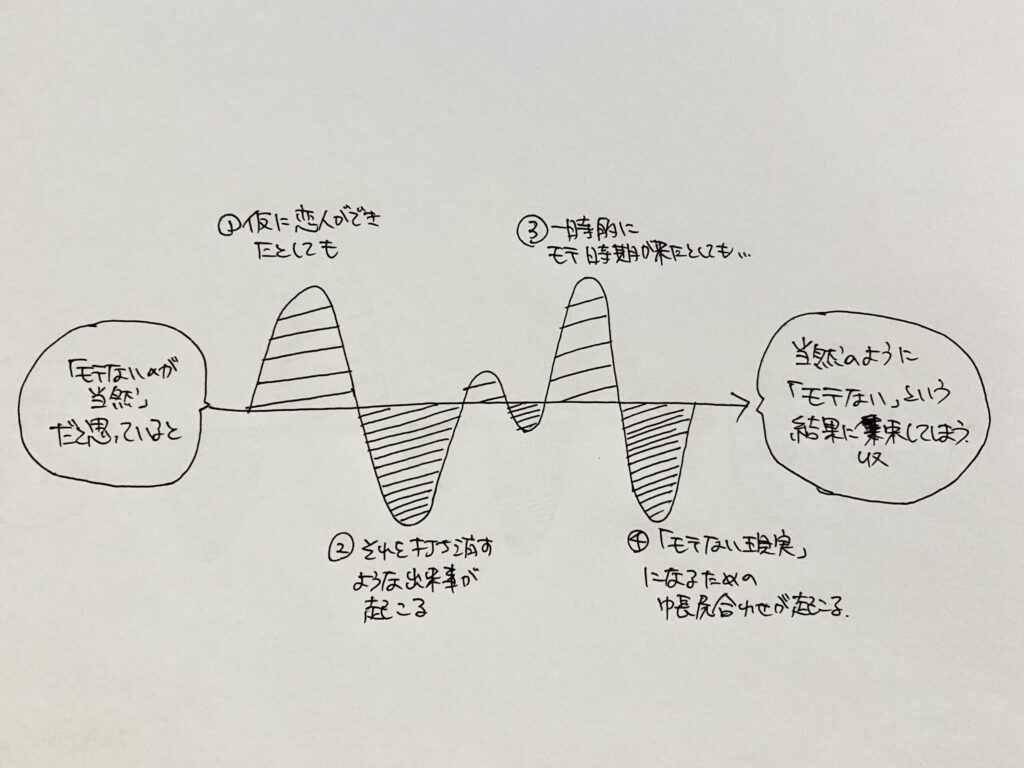 「モテないのが
当然」
だと思っていると
①仮に恋人ができ
たとしても
②それを打ち消す
ような出来事が
起こる
③一時的に
モテ時期が来たとしても…
④「モテない現実」
になるための
帳尻合わせが起こる.
当然のように
「モテない」という
結果に集束してしまう.
収